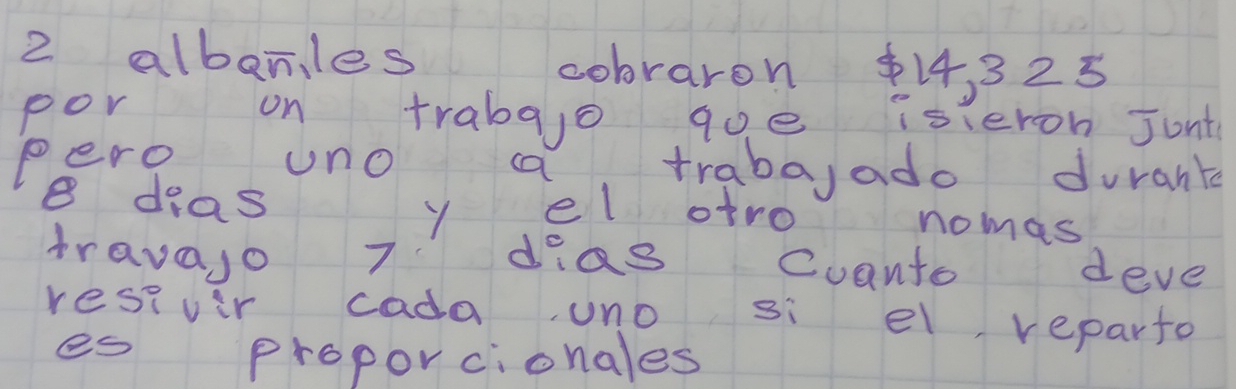 2 albañiles cobraron $14,325
por un trabajo que isieron Junt
pero uno a trabajado durante
8 dias y el otro nomas
travajo 7 dias Cuanto deve
resivir cada uno si el reparto
es proporcionales